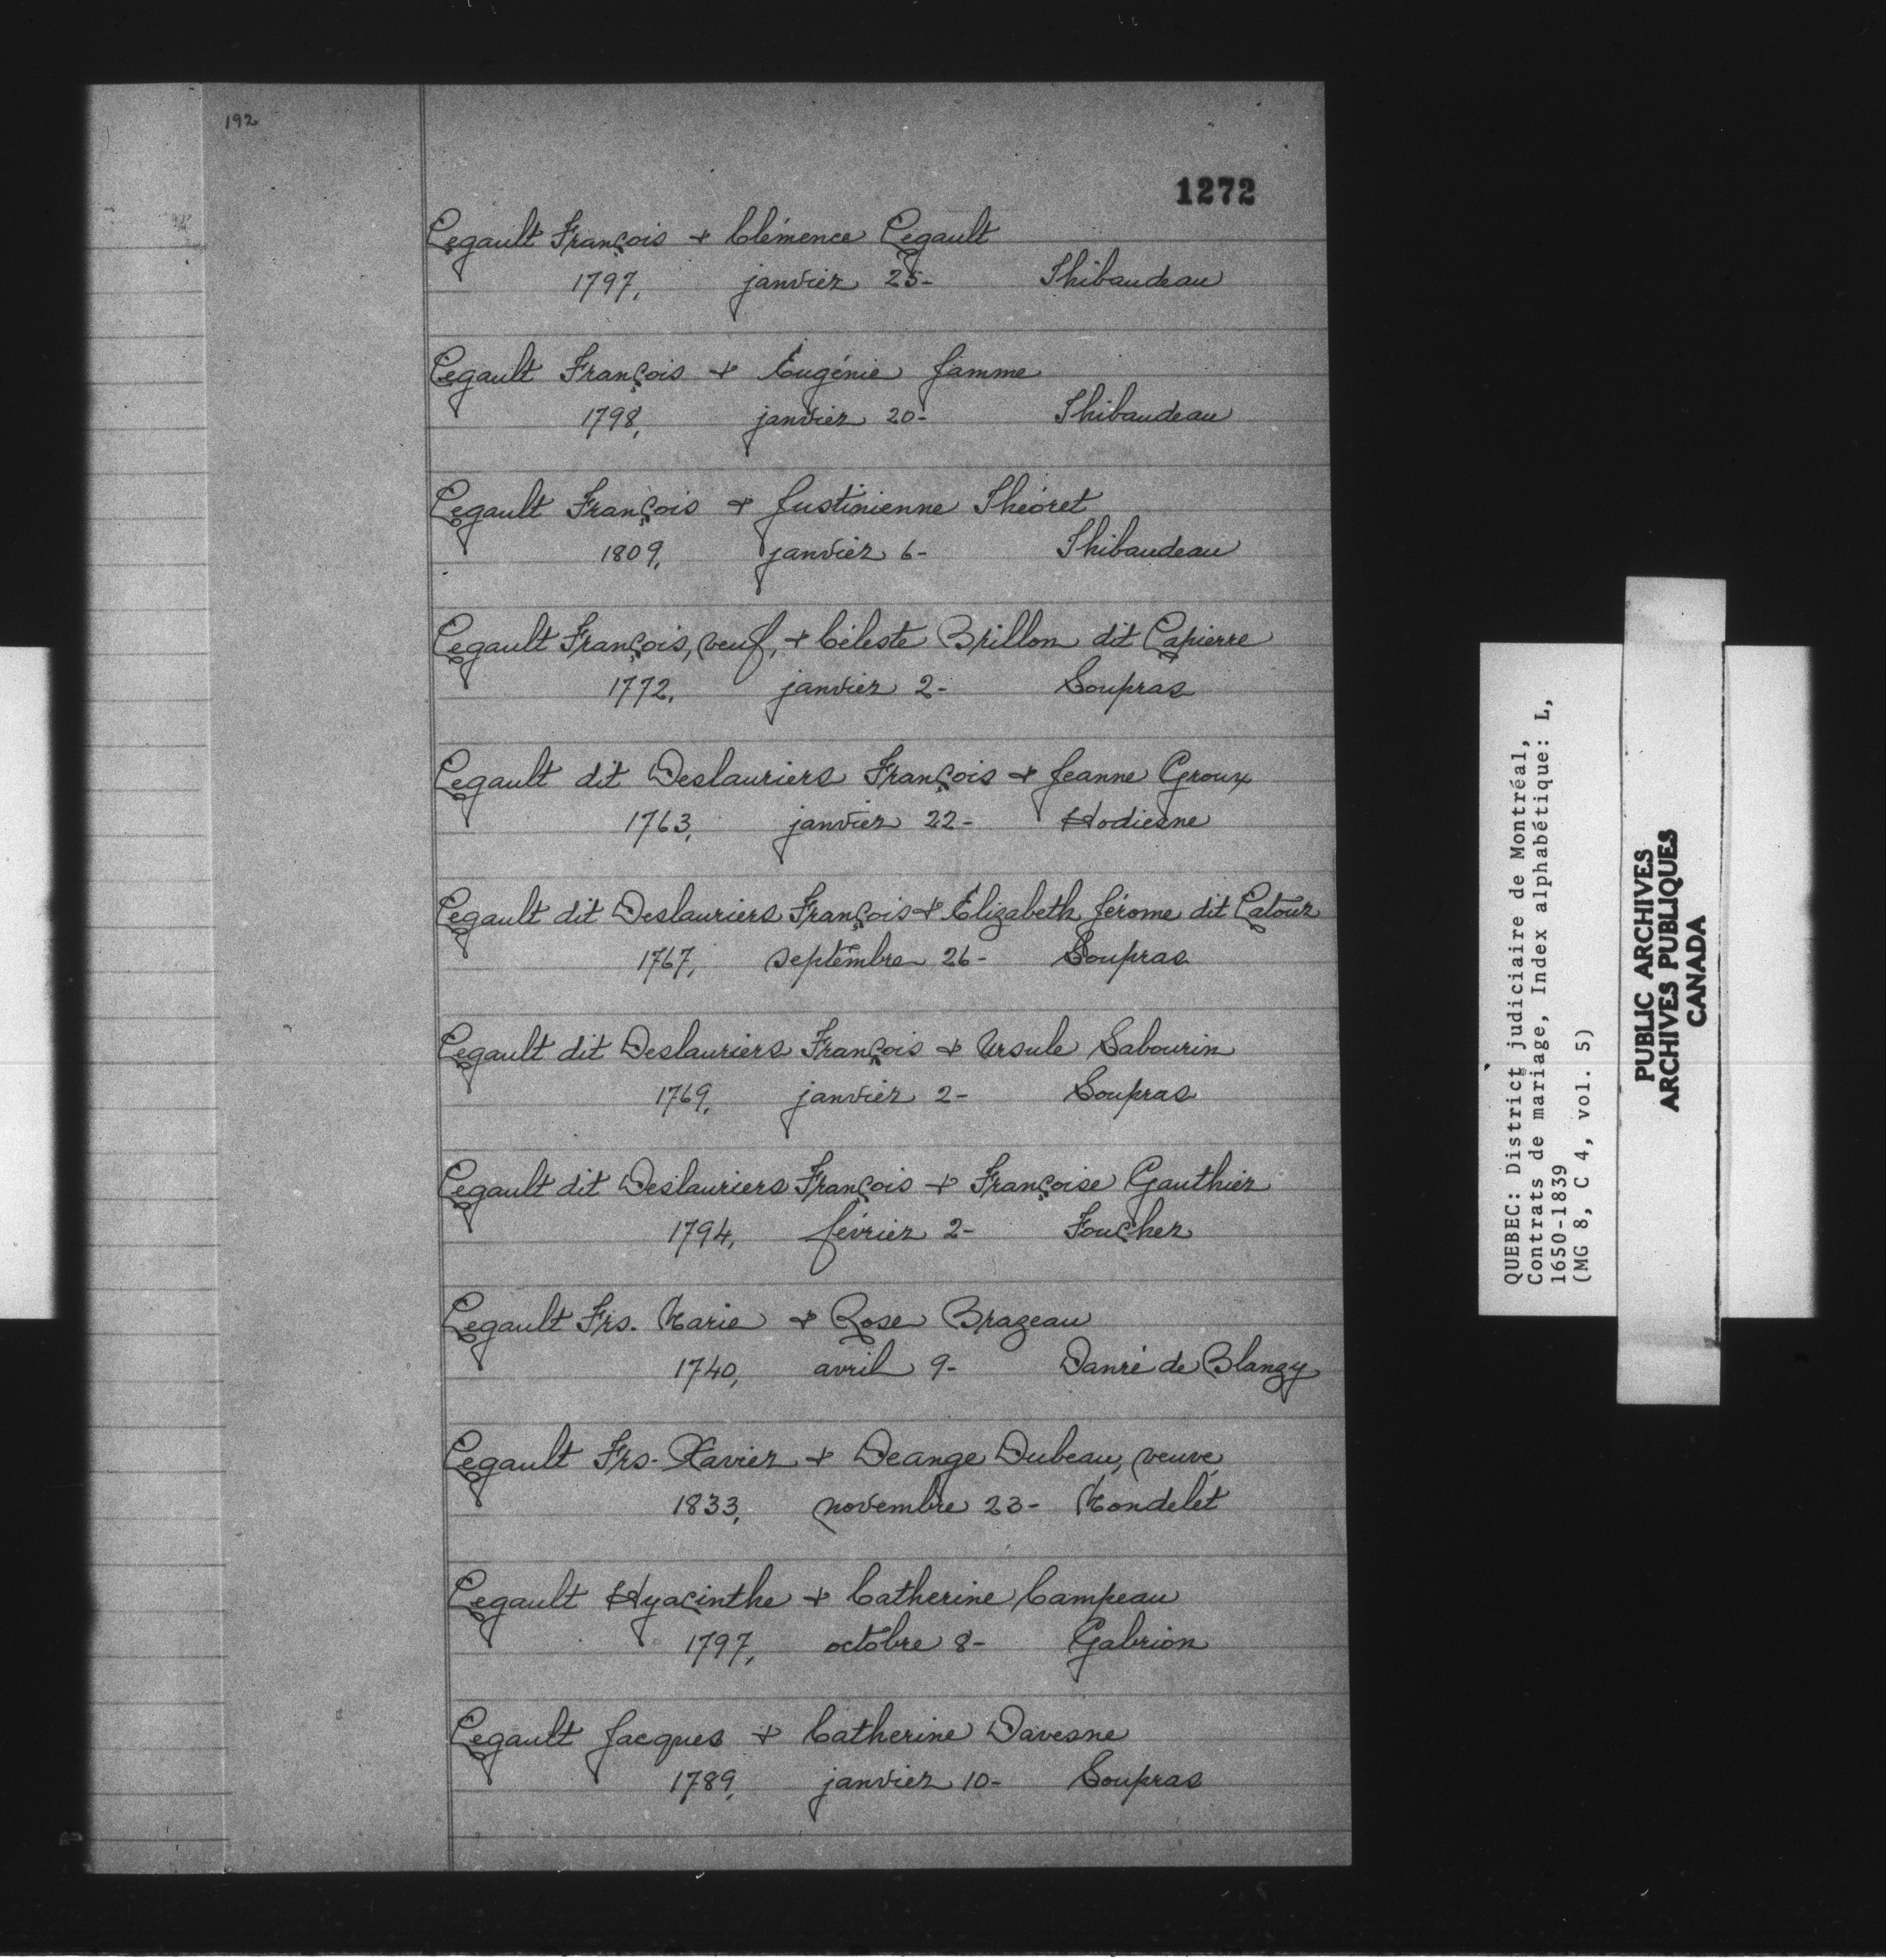 192
1272
Legault François & Clémence Legault
1797, janvier 25- Thibaudeau
Legault François & Eugénie Jamme
1798, janvier 20- Thibaudeau
Legault François & Justinienne Théoret
1809, janvier 6- Thibaudeau
Legault François, veuf, & Céleste Brillon dit Lapierre
1772, janvier 2- Soupras
Legault dit Deslauriers François & Jeanne Groux
1763, janvier 22- Hodiesne
Legault dit Deslauriers François & Élizabeth Jérome dit Latour
1767, septembre 26- Soupras
Legault dit Deslauriers François & Ursule Sabourin
1769, janvier 2- Soupras
Legault dit Deslauriers François & Françoise Gauthier
1794, février 2- Foucher
Legault Frs. Marie & Rose Brazeau
1740, avril 9- Danré de Blanzy
Legault Frs-Xavier & Deange Dubeau, veuve,
1833, novembre 23- Mondelet
Legault Hyacinthe & Catherine Campeau
1797, octobre 8- Gabrion
Legault Jacques & Catherine Davesne
1789, janvier 10- Soupras
QUEBEC: District judiciaire de Montréal,
Contrats de mariage, Index alphabétique: L,
1650-1839
(MG 8, C 4, vol. 5)
PUBLIC ARCHIVES
ARCHIVES PUBLIQUES
CANADA